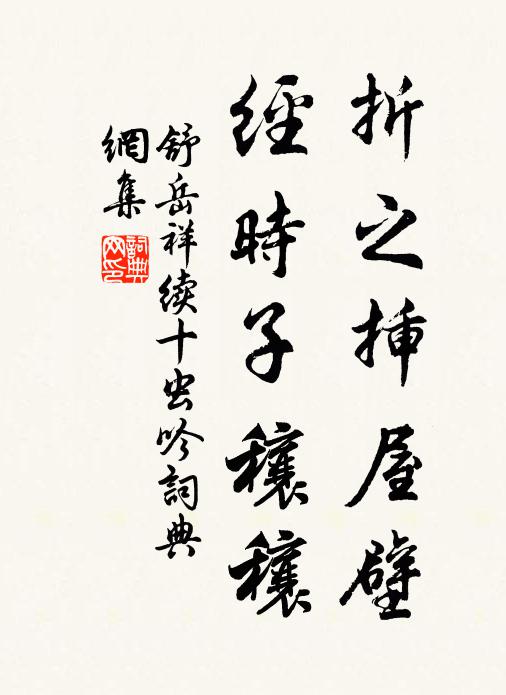 折之挿屋壁
經時子穰穰
舒岳祥续十虫吟詞典
網集
詞典網印